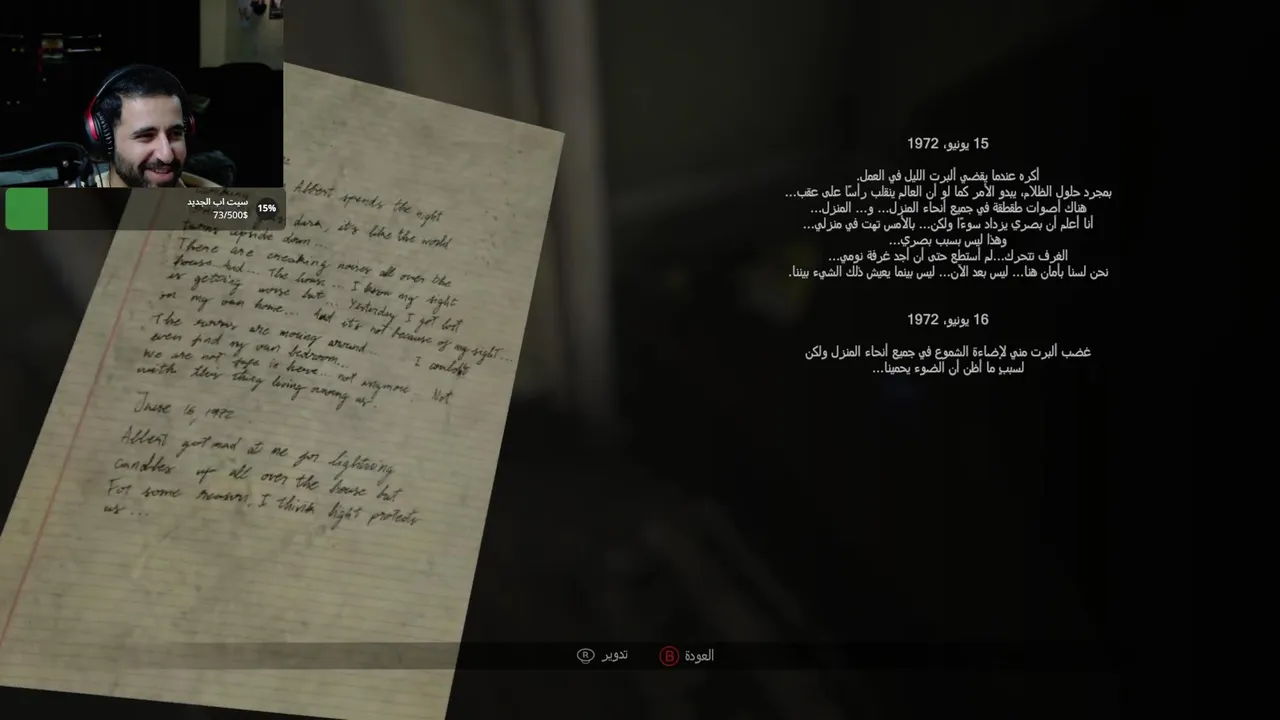 سيت اب الجديد
73/500$
15%
Albert spends the night
dark, it's like the world
turns upside down...
There are creaking noises all over the
house and... The house... I know my sight
is getting worse but... Yesterday I got lost
in my own home... And it's not because of my sight...
The rooms are moving around... I couldn't
even find my own bedroom...
We are not safe in here... not anymore... Not
with this thing living among us.
June 16, 1972
Albert got mad at me for lightning
candles up all over the house but
For some reason, I think light protects
us...
15 يونيو، 1972
أكره عندما يقضي ألبرت الليل في العمل.
بمجرد حلول الظلام، يبدو الأمر كما لو أن العالم ينقلب رأسًا على عقب...
هناك أصوات طقطقة في جميع أنحاء المنزل... و... المنزل...
أنا أعلم أن بصري يزداد سوءًا ولكن... بالأمس تهت في منزلي...
وهذا ليس بسبب بصري...
الغرف تتحرك...لم أستطع حتى أن أجد غرفة نومي...
نحن لسنا بأمان هنا... ليس بعد الآن... ليس بينما يعيش ذلك الشيء بيننا.
16 يونيو، 1972
غضب ألبرت مني لإضاءة الشموع في جميع أنحاء المنزل ولكن
لسببٍ ما أظن أن الضوء يحمينا...
R تدوير
B العودة